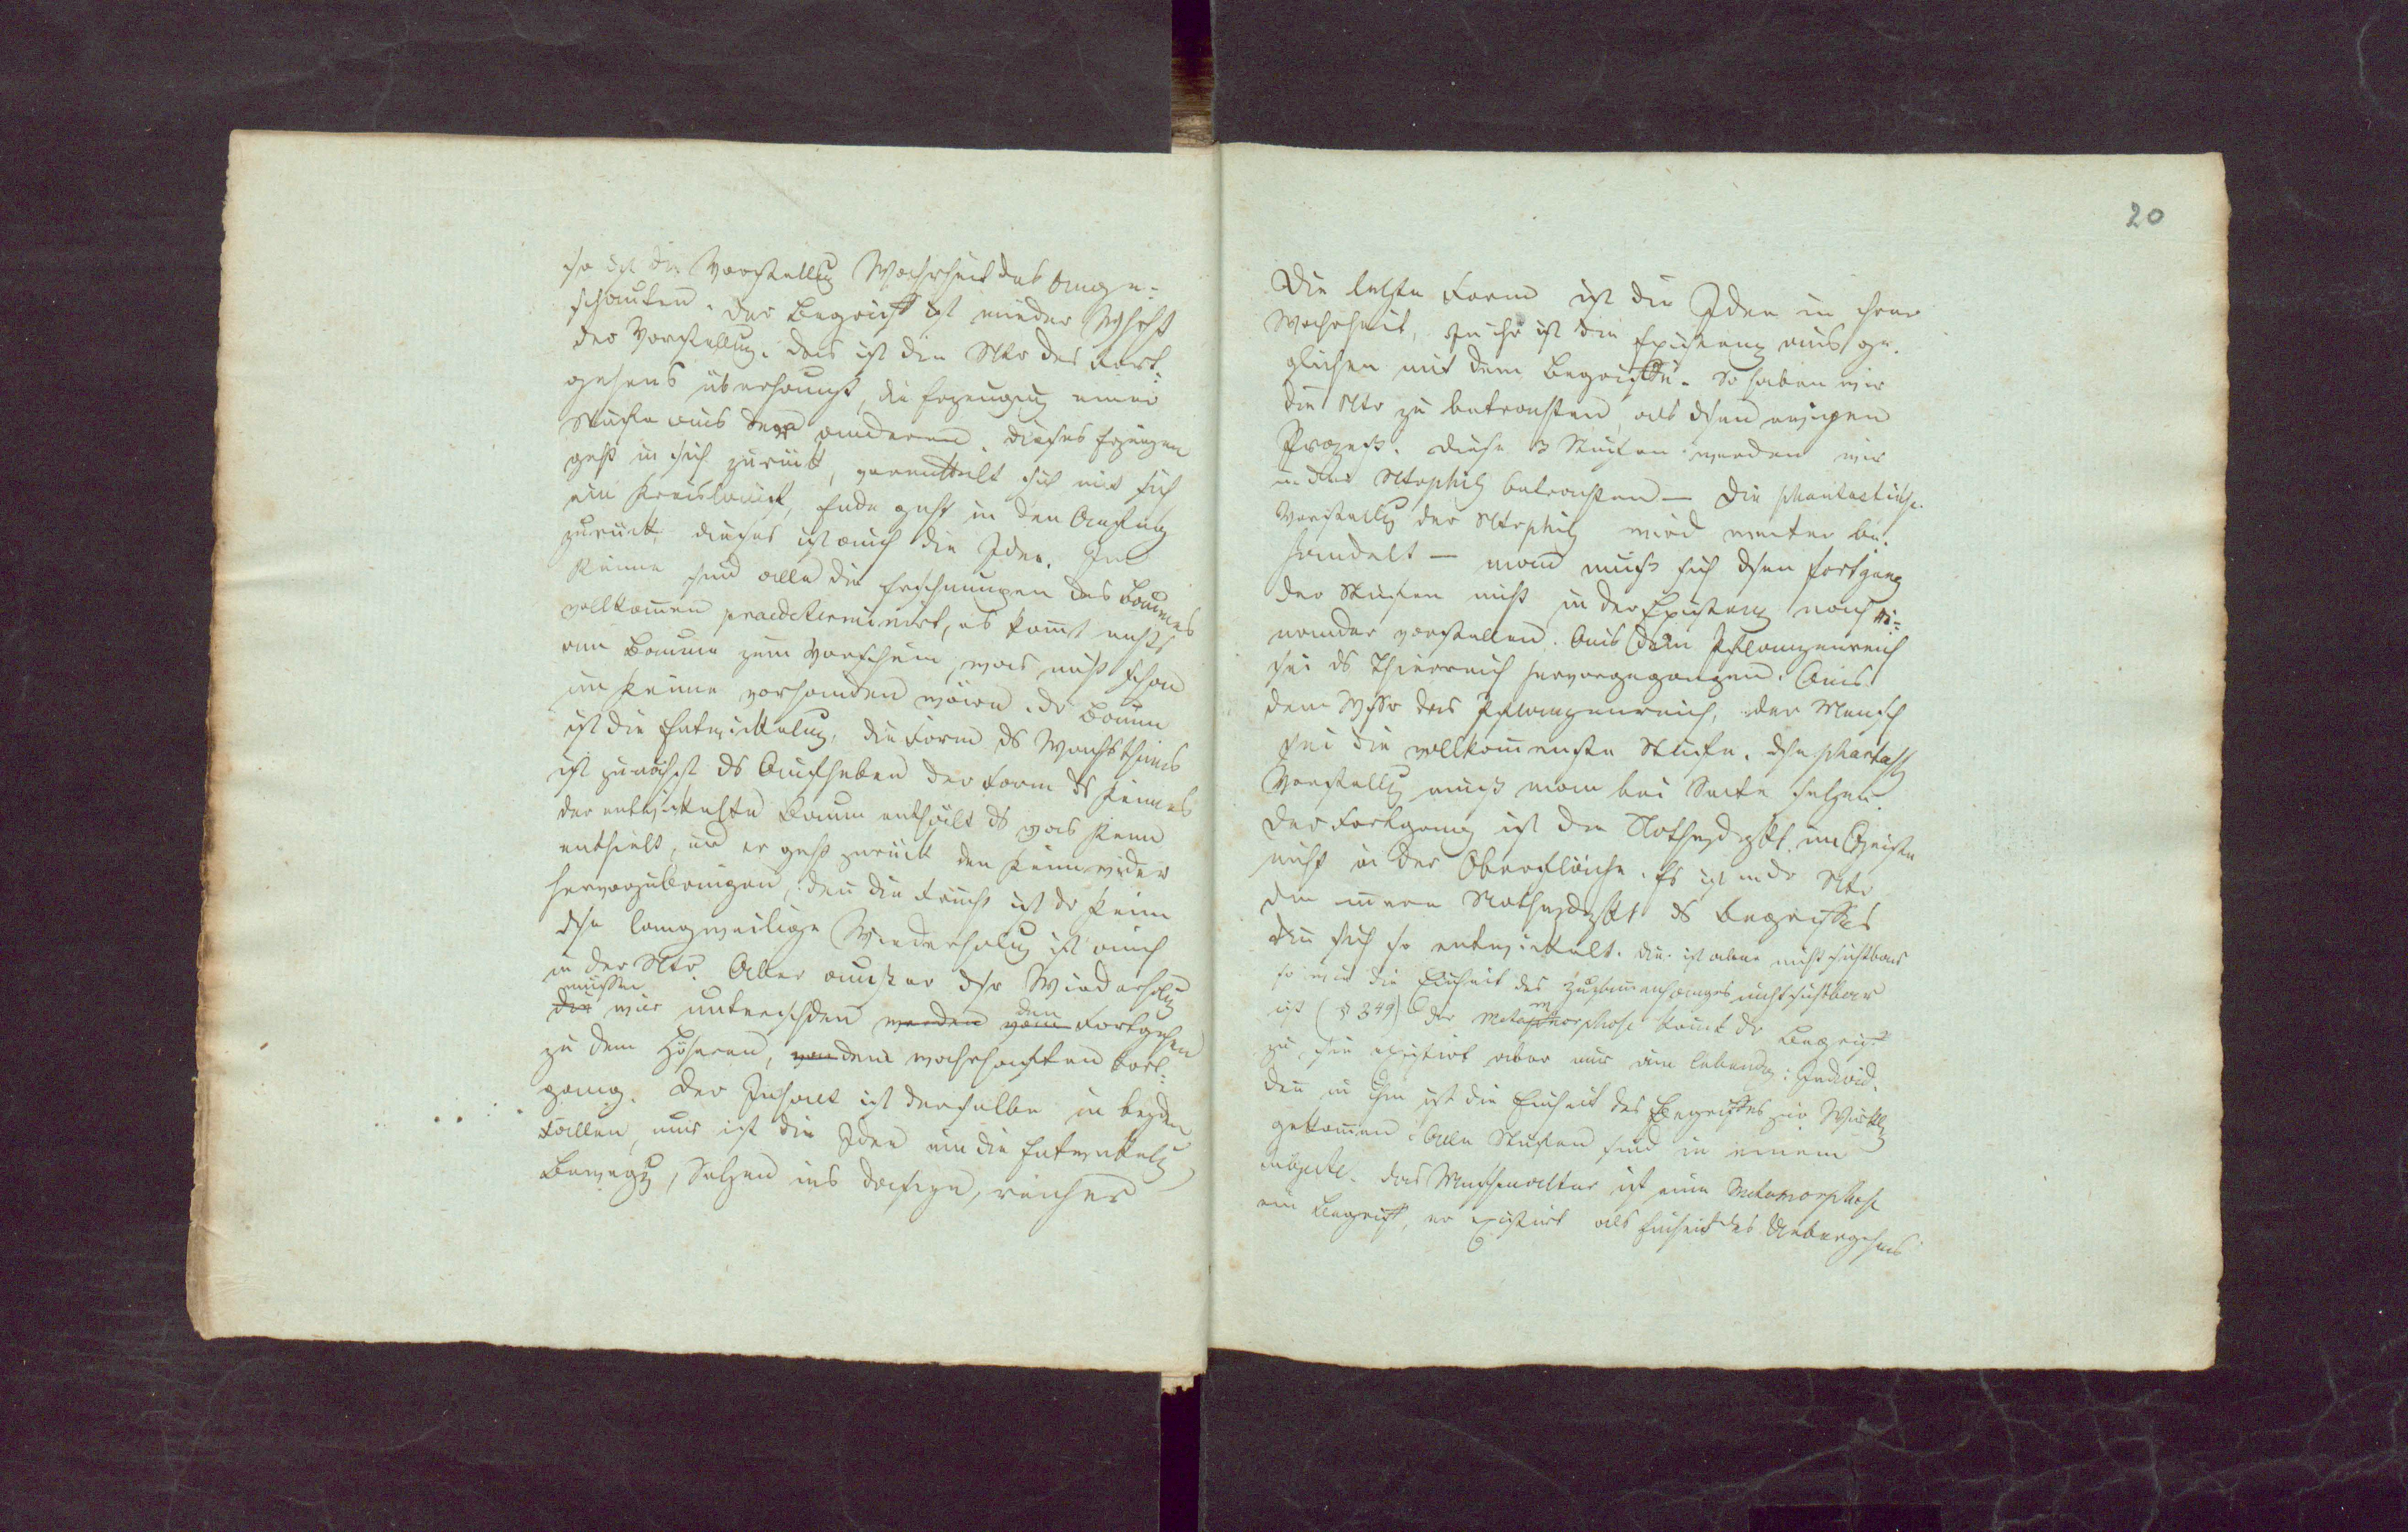 so ist die Vorstellug Wahrheit des ange-
schauten. der Begriff ist wieder Whrht
der Vorstellug. das ist die Ntr des Fort-
gehens überhaupt, die Erzeugug einer
Stufe aus der anderen. dieses Erzeugen
geht in sich zurück, vermittelt sich mit sich
ein Kreislauf, Ende geht in den Anfang
zurück, dieses ist auch die Idee. Im
Keime sind alle die Erscheinungen des Baumes
vollkomen praedeterminirt, es komt nichts
am Baume zum Vorschein, was nicht schon
im Keime vorhanden wäre. dr Baum
ist die Entwickelug, die Form ds Wachsthums
ist zunächst ds Aufheben der Form ds Keimes
der entwickelte Baum enthält ds was Keim
enthielt, und er geht zurück den Keim wider
hervorzubringen, den die Frucht ist dr Keim
dse langweilige Wiederholug ist auch
in der Ntr. Aber ausser dsr Wiederholug
müssen
die wir unterschden werden vom den Fortgehen
zu dem Höheren, von dem wahrhaften Fort-
gang. der Inhalt ist derselbe in beyden
Fällen, nur ist die Idee um die Entwickelg
Bewegg, Setzen ins Daseyn, reicher
20
Die letzte Form ist die Idee in ihrer
Wahrheit, In ihr ist die Existenz ausge-
glichen mit dem Begriffe. So haben wir
die Ntr zu betrachten als dsen ewigen
Prozeß. diese 3 Stufen werden wir
in der Ntrphil betrachten — Die phantastische
Vorstellug der Ntrphil wird weiter be-
handelt — man muß sich dsen Fortgang
der Stufen nicht in der Existenz nach ei-
nander vorstellen. Aus dem Pflanzenreich
sei ds Thierreich hervorgegangen. Aus
dem Wssr das Pflanzenreich, der Mensch
sei die vollkomenste Stufe. dse phantast
Vorstellug muß man bei Seite setzen.
der Fortgang ist die Nothwdgkt im Geiste
nicht in der Oberfläche. Es ist in dr Ntr
die innere Nothwdgkt ds Begriffes
die sich so entwickelt. die ist aber nicht sichtbar
so wie die Einheit des Zusamenhanges nicht sichtbar
ist (§ 249) der Metamorphose komt dr Begriff
zu, sie existirt aber nur am lebendg: Individ.
den in ihm ist die Einheit des Begriffes zur Wirkl
gekomen. Alle Stufen sind in einem
Subjecte. das Menschenalter ist eine Metamorphose
ein Begriff, er existirt als Einheit des Uebergehens